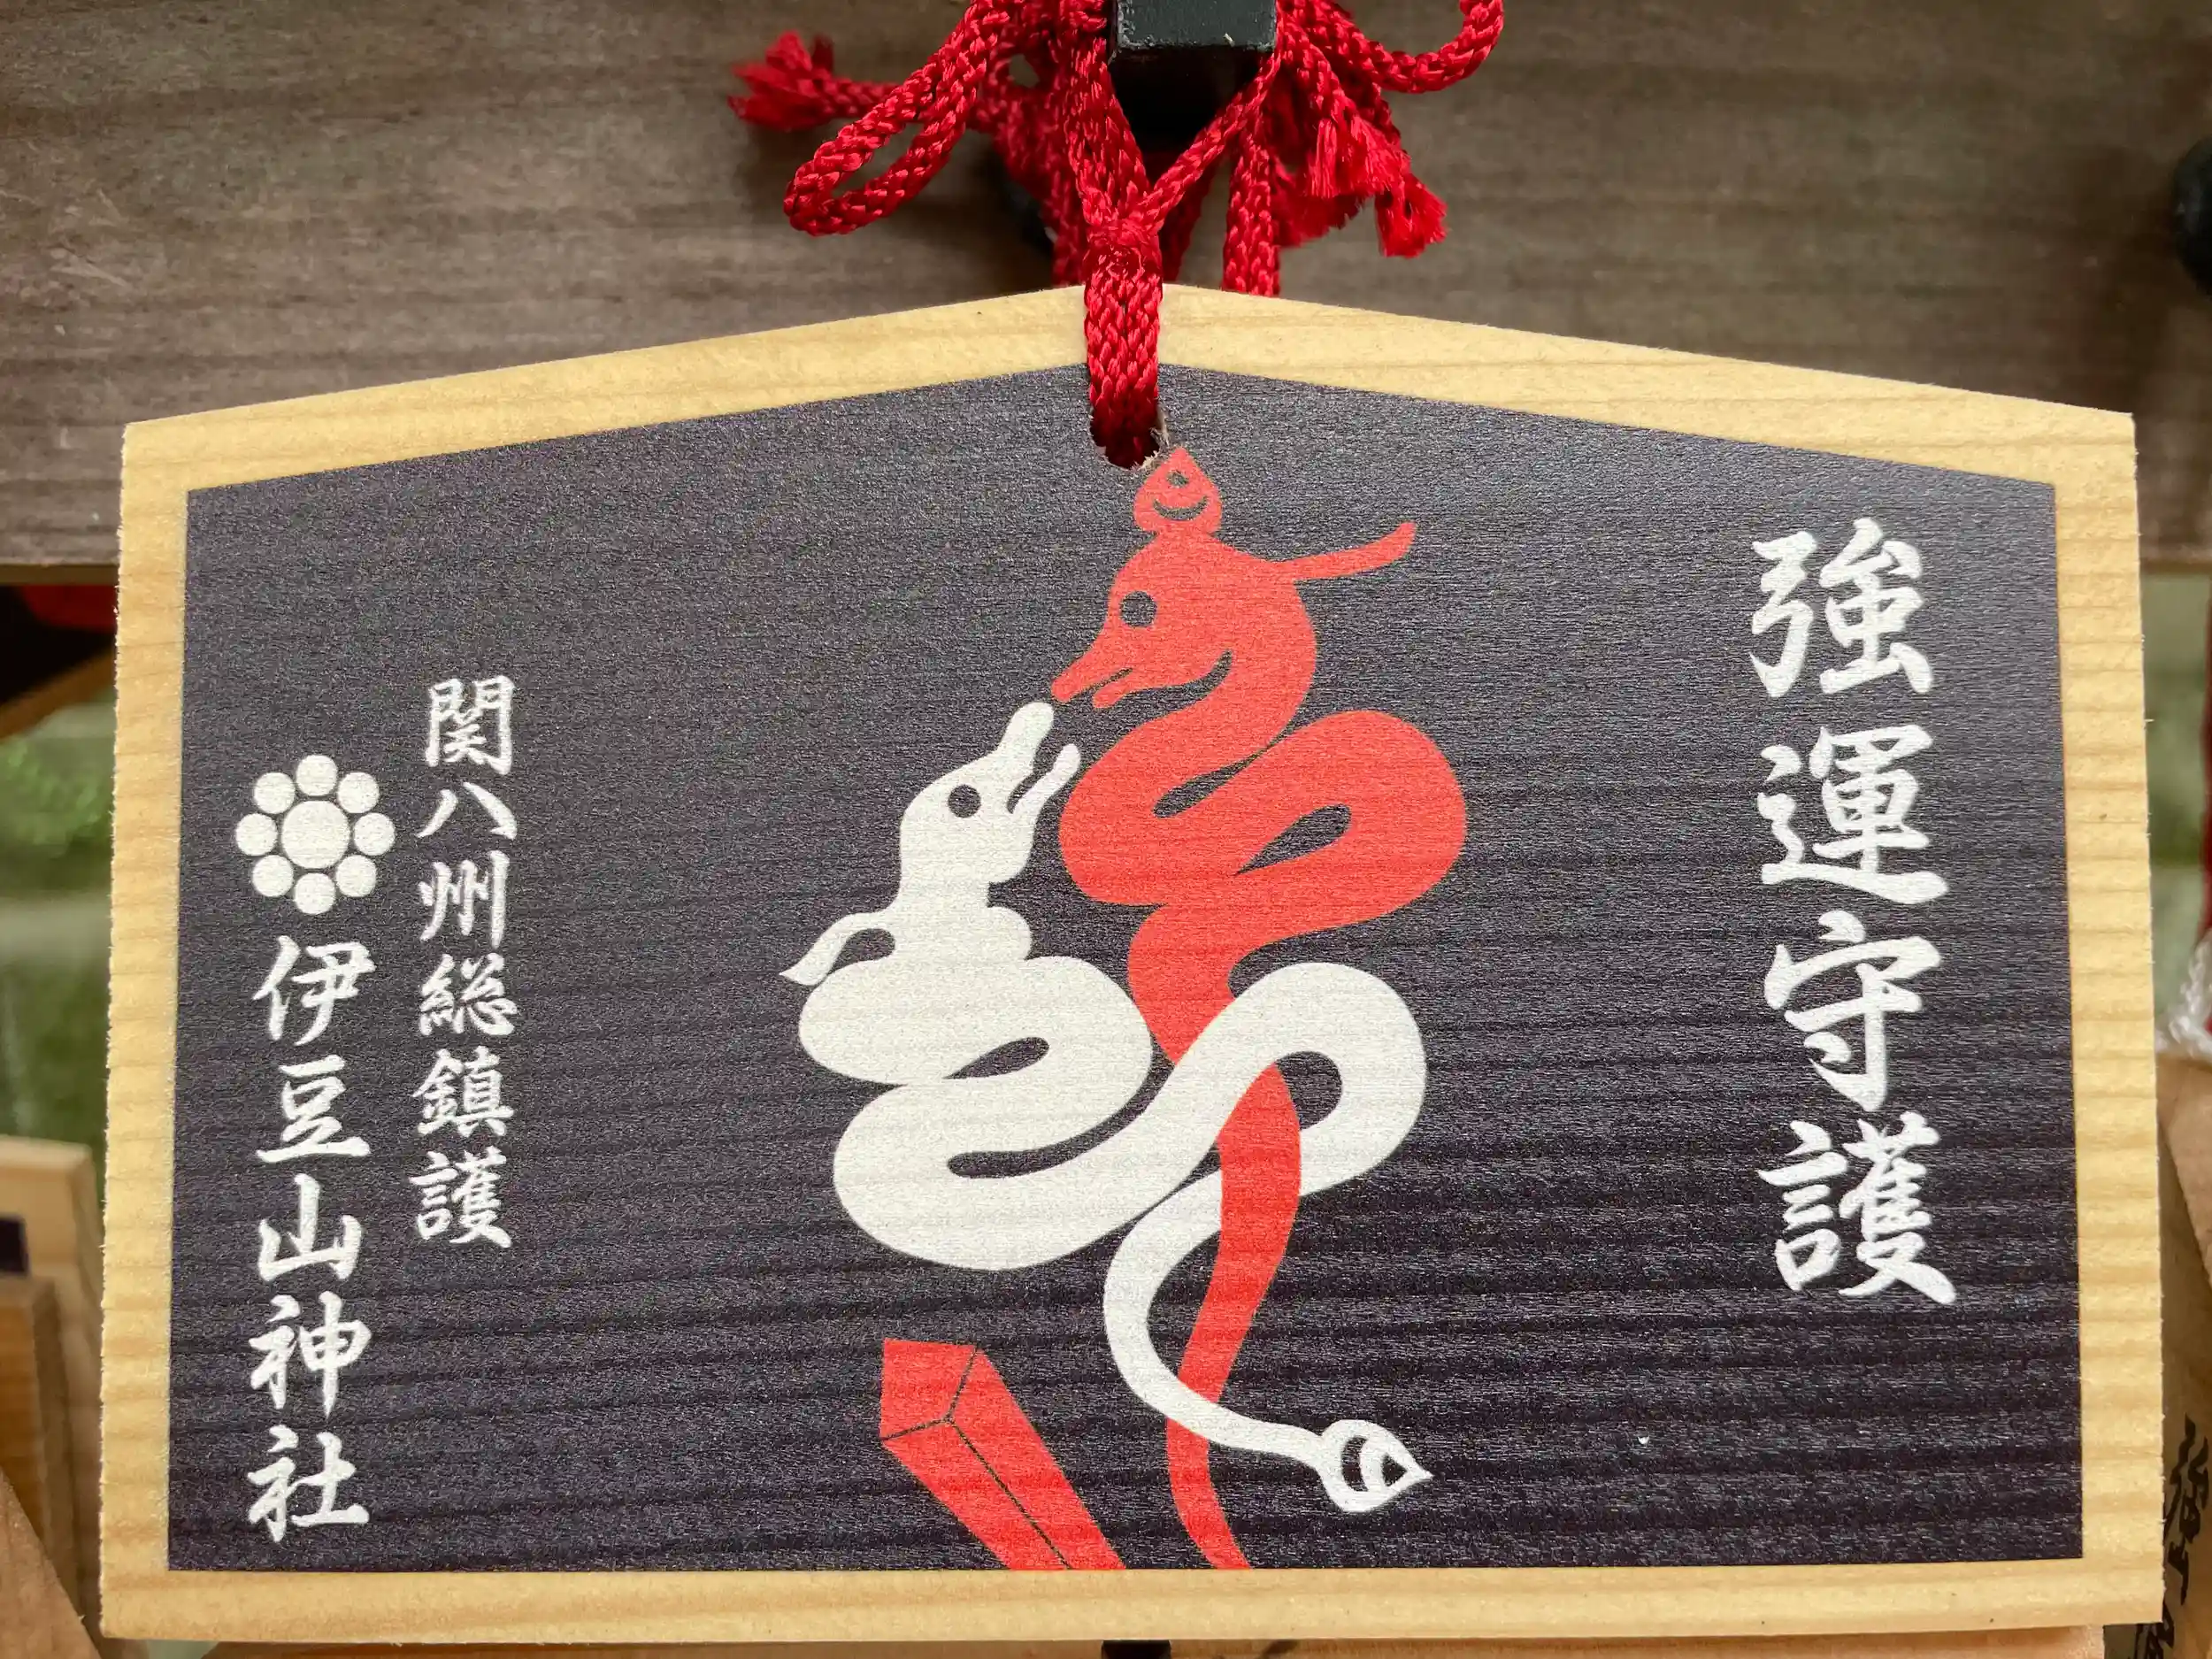 強運守護
関八州総鎮護
伊豆山神社